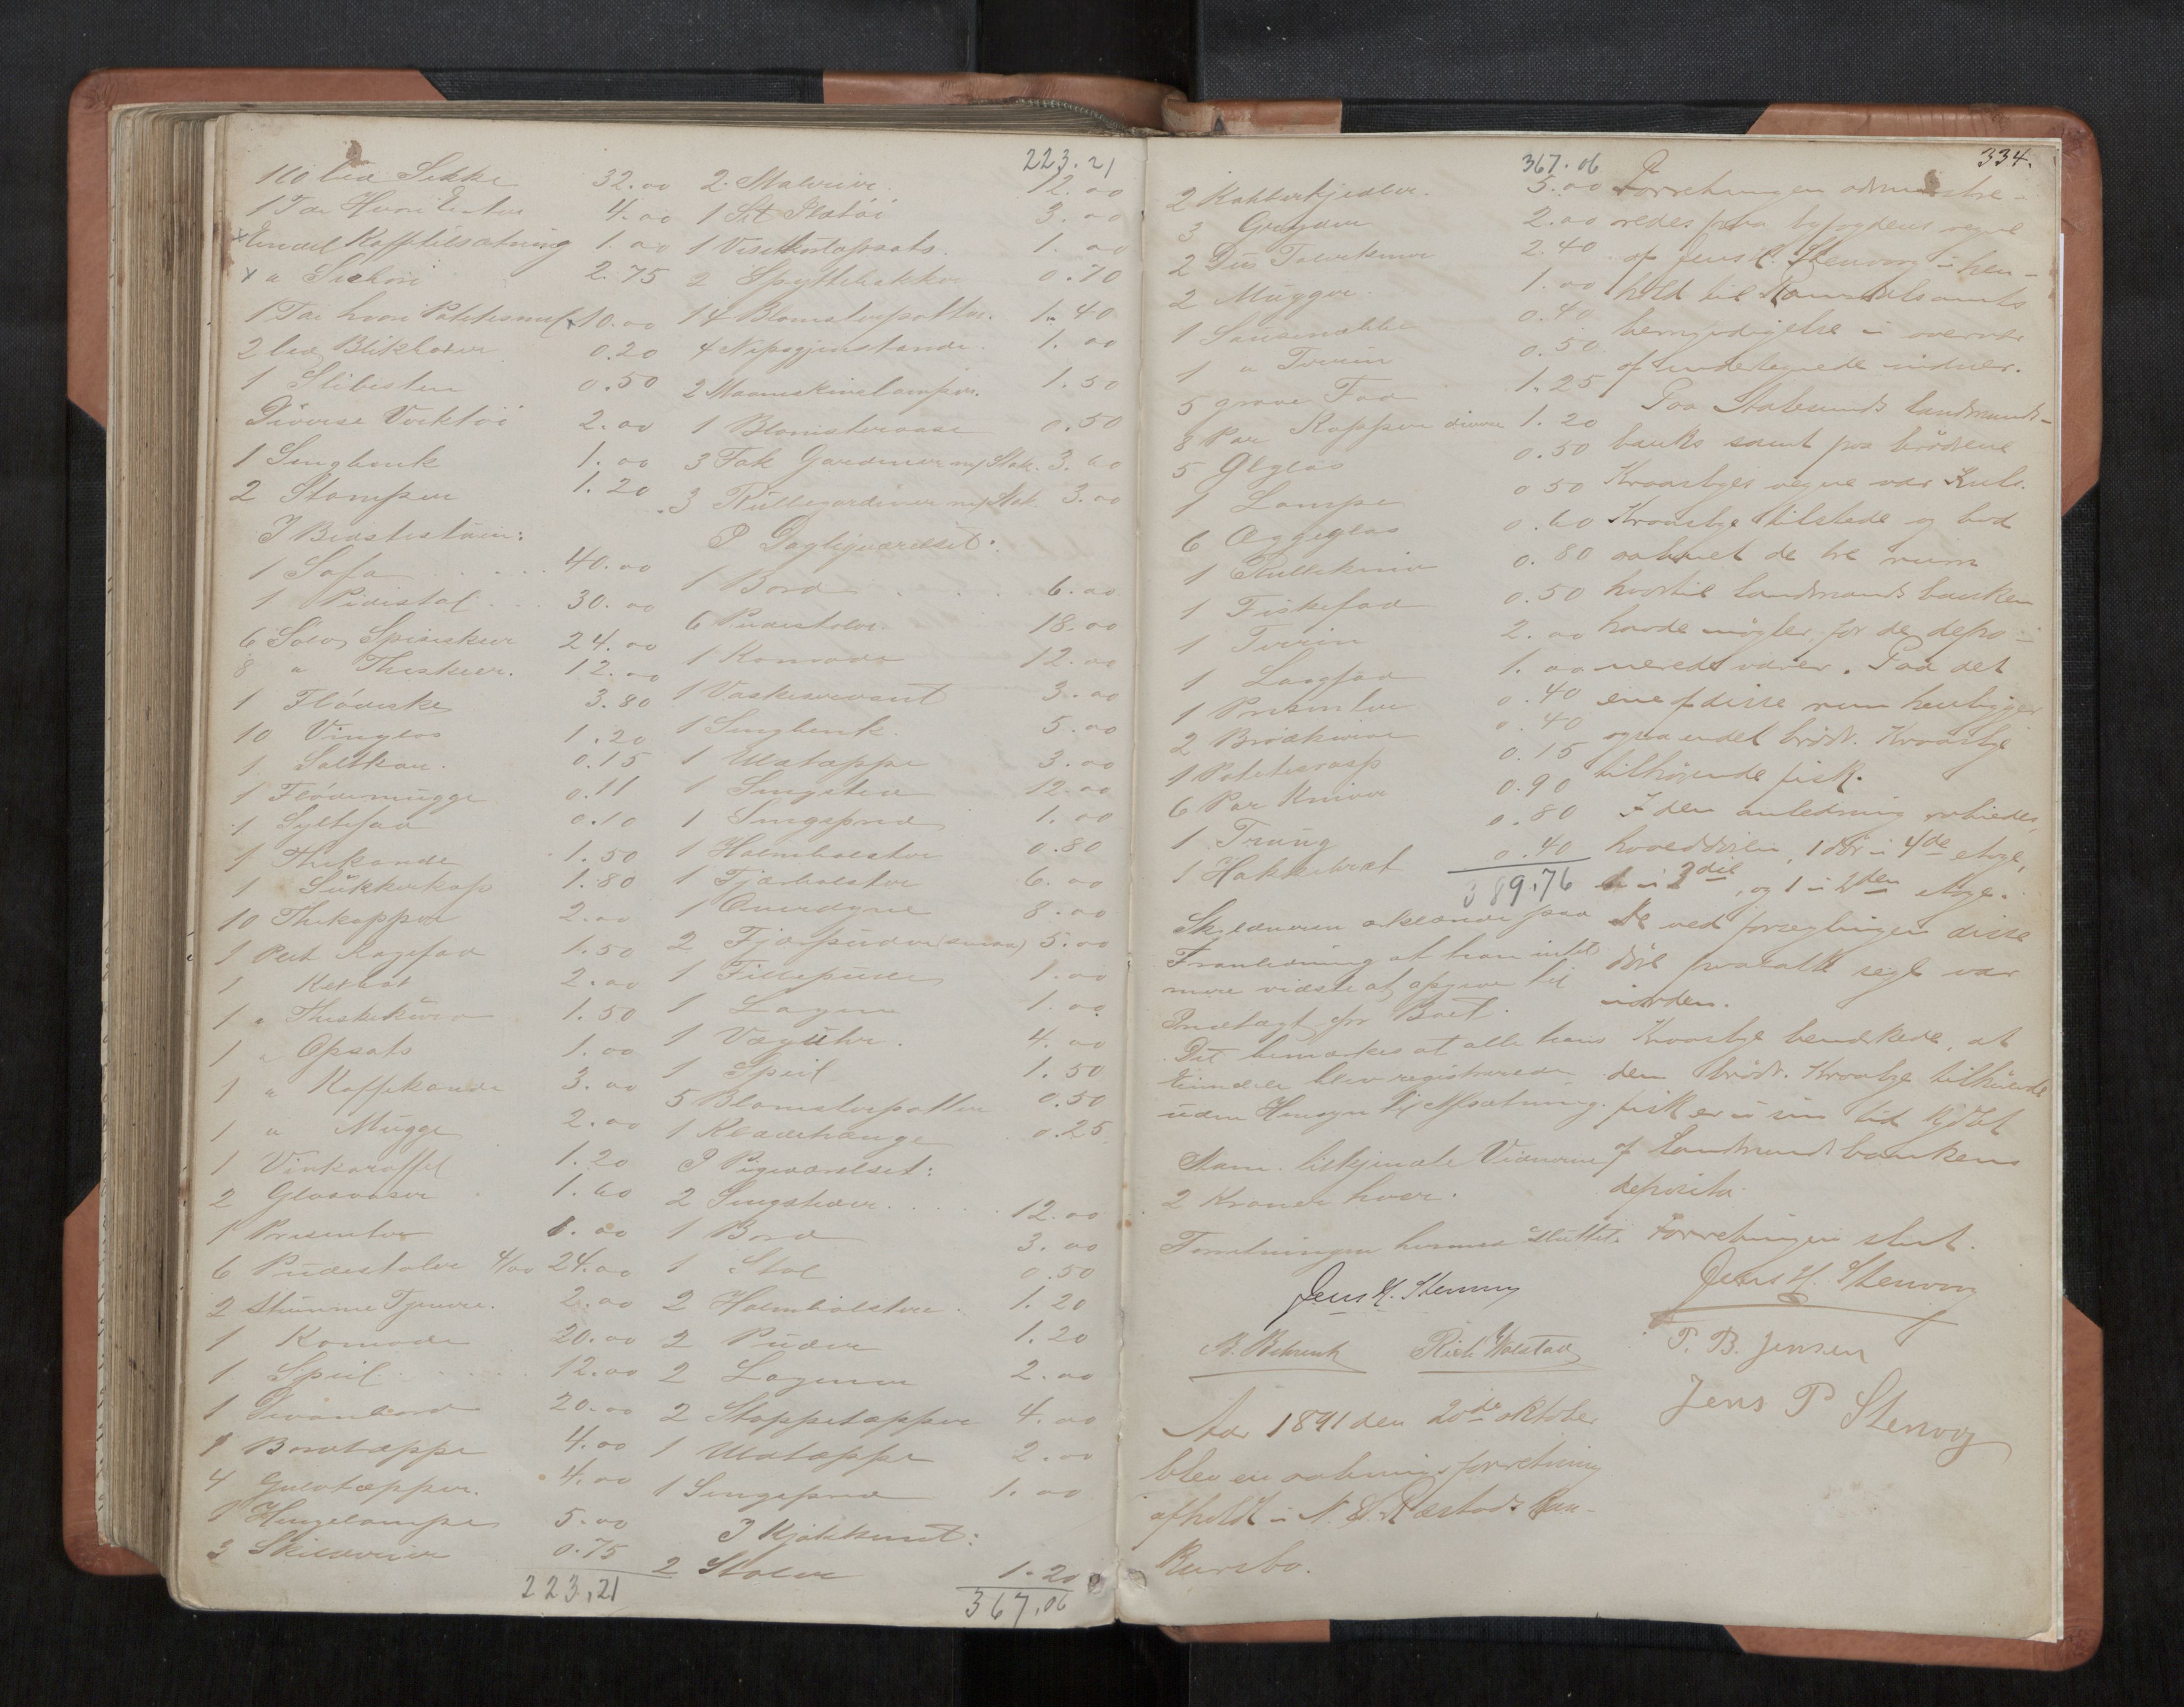 160 led Sække 32.00
1 Tøe Hvori Eister 4.00
x Eendel Kaffetilsætning 1.00
x " Sichori 2.75
1 Tøe hvori Potetesmel x 10.00
2 led. Blikbaser 0.20
1 Slibesten 0.50
Diverse Værktøi 2.00
1 Sengbenk 1.00
2 Stamper 1.20
I Bedstestuen:
1 Sofa 40.00
1 Pidestal 30.00
6 Sølv Spiseskeer 24.00
8 " Theskeer. 12.00
1 Flødeske 3.80
10 Vinglas 1.20
1 Saltkar. 0.15
1 Flødemugge 0.11
1 Syltefad 0.10
1 Thekande 1.50
1 Sukkerkop 1.80
10 Thekopper 2.00
1 Plet Kagefad 1.50
1 2.00
1 " Theskekurv 1.50
1 " Opsats 1.00
1 " Kaffekande 3.00
1 " Mugge 2.00
1 Vinkaraffel 1.20
2 Glasvaser 1.60
1 Presenter 1.00
6 Pudestoler 4/00 24.00
2 Stumme Tjenere. 2.00
1 Komode 20.00
1 Speil 12.00
1 Divanbord 20.00
1 Bordtæppe 4.00
4 Gulvtæpper. 4.00
1 Hengelampe 5.00
3 Skilderier 0.75
223,21
223.21
2 Malerier 12.00
1 Set Pletøi 3.00
1 Visitkortopsats. 1.00
2 Spyttebakker 0.70
14 Blomsterpotter. 1.40
4 Nipsgjenstande. 1.00
2 Maaneskinslamper. 1.50
1 Blomstervase 0.50
3 Fak Gardiner m/ Stok. 3.60
3 Rullegardiner m/ Stok. 3.00
I Dagligværelset:
1 Bord 6.00
6 Pudestoler. 18.00
1 Komode 12.00
1 Vaskeservant 3.00
1 Sengbenk. 5.00
1 Uldtæppe 3.00
1 Sengsted 12.00
1 Sengspred 1.00
1 Halmbolster 0.80
1 Fjærbolster 6.00
1 Overdyne 8.00
2 Fjærpuder (smaa) 5.00
1 Fillepude 1.00
1 Lagen 1.00
1 Væguhr. 4.00
1 Speil 1.50
5 Blomsterpotter 0.50
1 Klædehænge 0.25
I Pigeværelset:
2 Sengsteder 12.00
1 Bord 3.00
1 Stol 0.50
2 Halmbolstere. 1.20
2 Puder 1.20
2 Lagener 2.00
2 Stoppetæpper 4.00
1 Uldtæppe 2.00
1 Sengspred 1.00
I Kjøkkenet:
2 Stoler 1.20
367,06
367.06
2 Kobberkjedler. 5.00
3 Gryder 2.00
2 Dus Talerkener 2.40
2 Mugger. 1.00
1 Sausenebbe 0.40
1 " Terrin 0.50
5 grove Fad 1.25
8 Par Kopper divers 1.20
5 Ølglas 0.50
1 Lampe 0.50
6 Æggeglas 0.60
1 Rullekniv 0.80
1 Fiskefad 0.50
1 Terrin 2.00
1 Langfad 1.00
1 Presenter 0.40
2 Brødkurve 0.40
1 Potetesrasp 0.15
6 Par Kniver 0.90
1 Traug 0.80
1 Hakkebræt 0.40
389.76
Skyldneren erklærede paa
Foranledning at han intet
mere vidste at opgive til
Indtægt for Boet.
Det bemærkes at alle hans
Eiendele blev registrerede
uden Hensyn til Afsætning.
Mænd. tilkjendte Vidnerne
2 Kroner hver.
Forretningen hermed sluttet.
Jens H. Stenvog
B. Behrenk Rich Wolstad
Aar 1891 den 20de oktober
blev en aabningsforretning
afholdt i N. E. Røstads kon-
kursbo.
334.
Forretningen administre-
redes paa byfogdens vegne
af Jens H. Stenvog i hen-
hold til Romsdals amts
bemyndigelse i overvær
af undertegnede vidner.
Paa Aalesunds landmands-
banks samt paa brødrene
Kvaasbyes vegne var Kuls.
Kvaasbye tilstede og bad
aabnet de tre rum
hvortil landmandsbanken
havde nøgler for de depo-
nerede varer. Paa det
ene af disse rum henligger
ogsaa endel brødr. Kvaasbye
tilhørende fisk.
I den anledning aabnedes
hoveddøren, 1 dør i 4de etage,
1 i 3die, og 1 i 2den etage.
De ved forseglingen disse
døre paasatte segl var
iorden.
Kvaasbye bemærkede, at
den brødr. Kvaasbye tilhørende
fisk er i sin tid kjøbt
af landmandsbankens
deposita.
Forretningen slut.
Jens H. Stenvog
P. B. Jensen
Jens P Stenvog